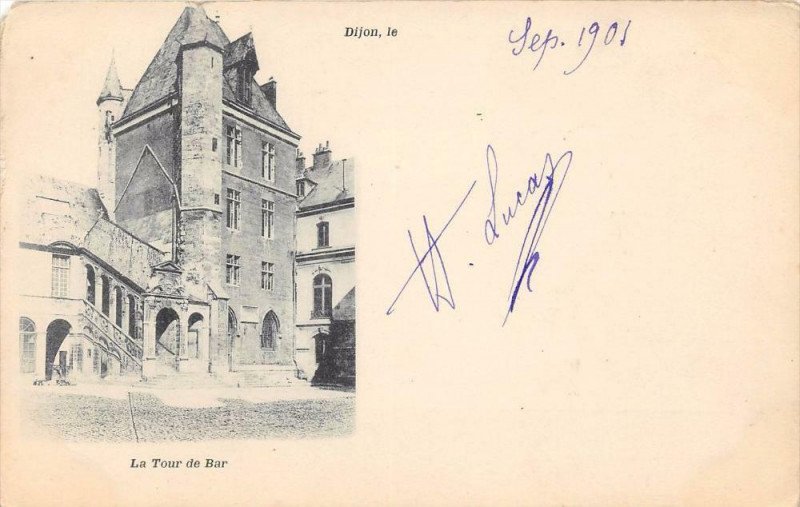 Dijon, le
Sep. 1901
H. Lucas
La Tour de Bar